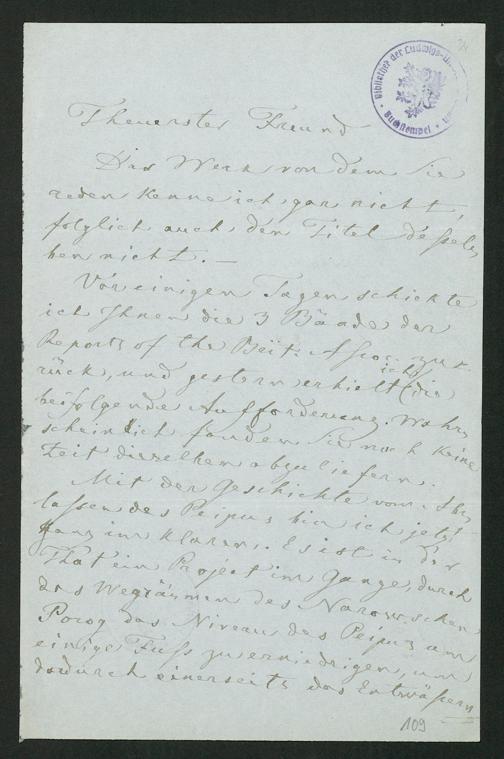 Theuerster Freund
Das Werk von dem Sie
reden kenne ich gar nicht,
folglich auch den Titel dessel-
ben nicht. —
Vor einigen Tagen schickte
ich Ihnen die 3 Bände der
Reports of the Brit. Assoc. zu-
rück, und gestern erhielt ich die
beifolgende Aufforderung. Wahr-
scheinlich fanden Sie noch keine
Zeit dieselben abzuliefern.
Mit der Geschichte vom Ab-
lassen des Peipus bin ich jetzt
ganz im Klaren. Es ist in der
That ein Project im Gange, durch
das Wegräumen des Narowschen
Porog das Niveau des Peipus um
einige Fuss zu erniedrigen, um
dadurch einerseits das Entwässern
109
Bibliothek der Ludwigs-
Buchstempel